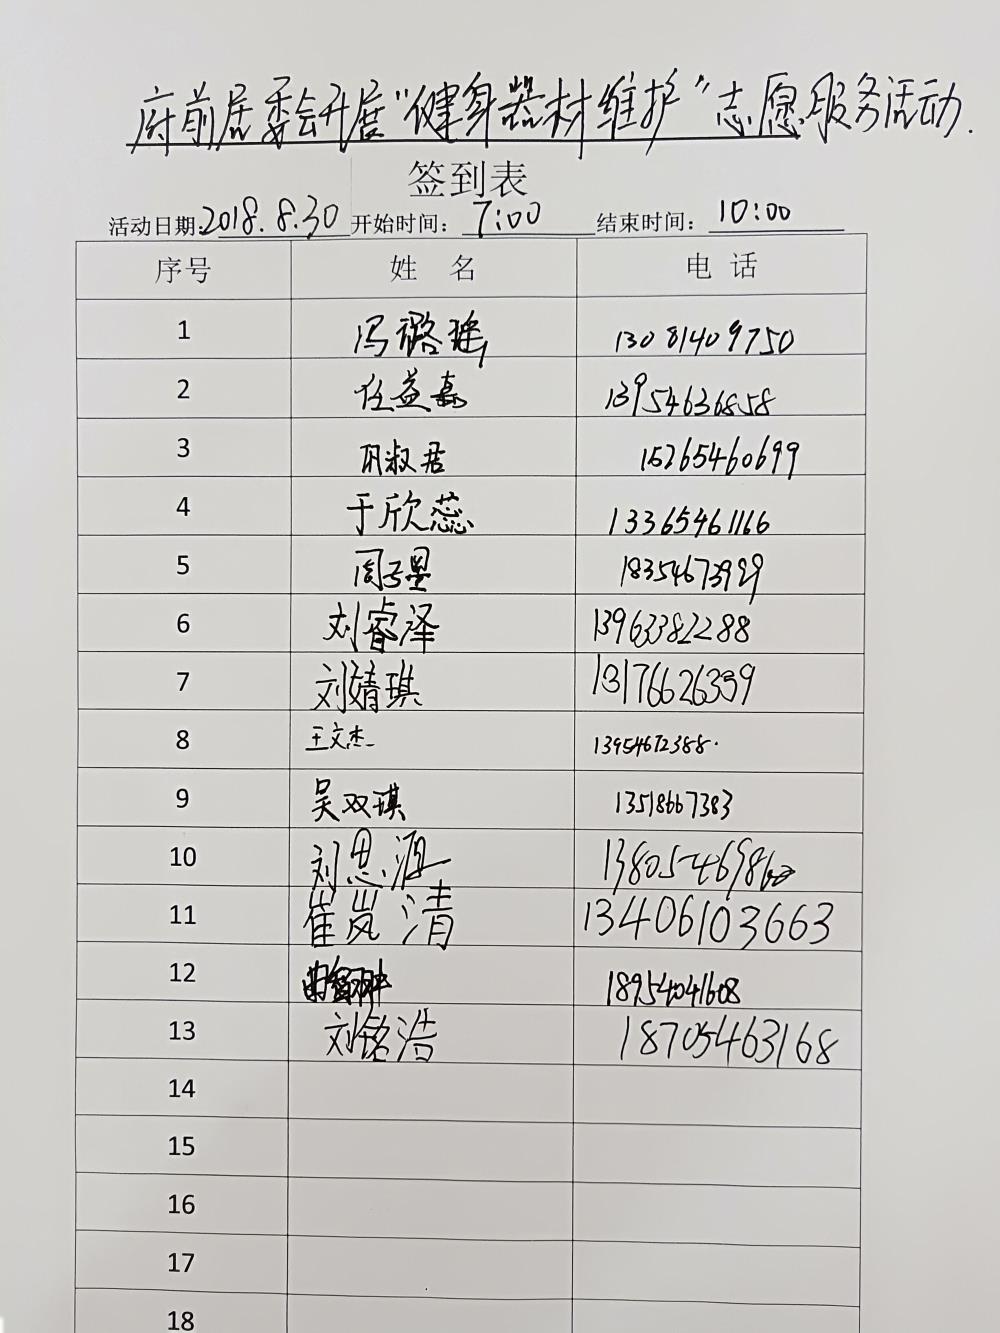 府前居委会开展“健身器材维护”志愿服务活动.
签到表
活动日期:2018.8.30 开始时间: 7:00 结束时间: 10:00
序号 姓 名 电 话
1 冯璐瑶 13081409750
2 任益嘉 13954636858
3 巩淑君 15265460699
4 于欣蕊 13365461166
5 周子墨 18354673999
6 刘睿泽 13963382288
7 刘婧琪 13176626339
8 王文杰 13954672388.
9 吴双琪 13518667383
10 刘思源 138054698
11 崔岚清 13406103663
12 18954041608
13 刘铭浩 18705463168
14
15
16
17
18